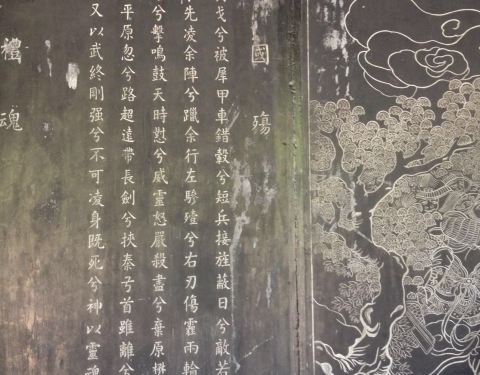 國殤
戈兮被犀甲車錯轂兮短兵接旌蔽日兮敵若
先凌余陣兮躐余行左驂殪兮右刃傷霾兩輪
兮擊鳴鼓天時懟兮威靈怒嚴殺盡兮棄原
平原忽兮路超遠帶長劍兮挾秦弓首雖離兮
又以武終剛强兮不可凌身既死兮神以靈魂
禮魂